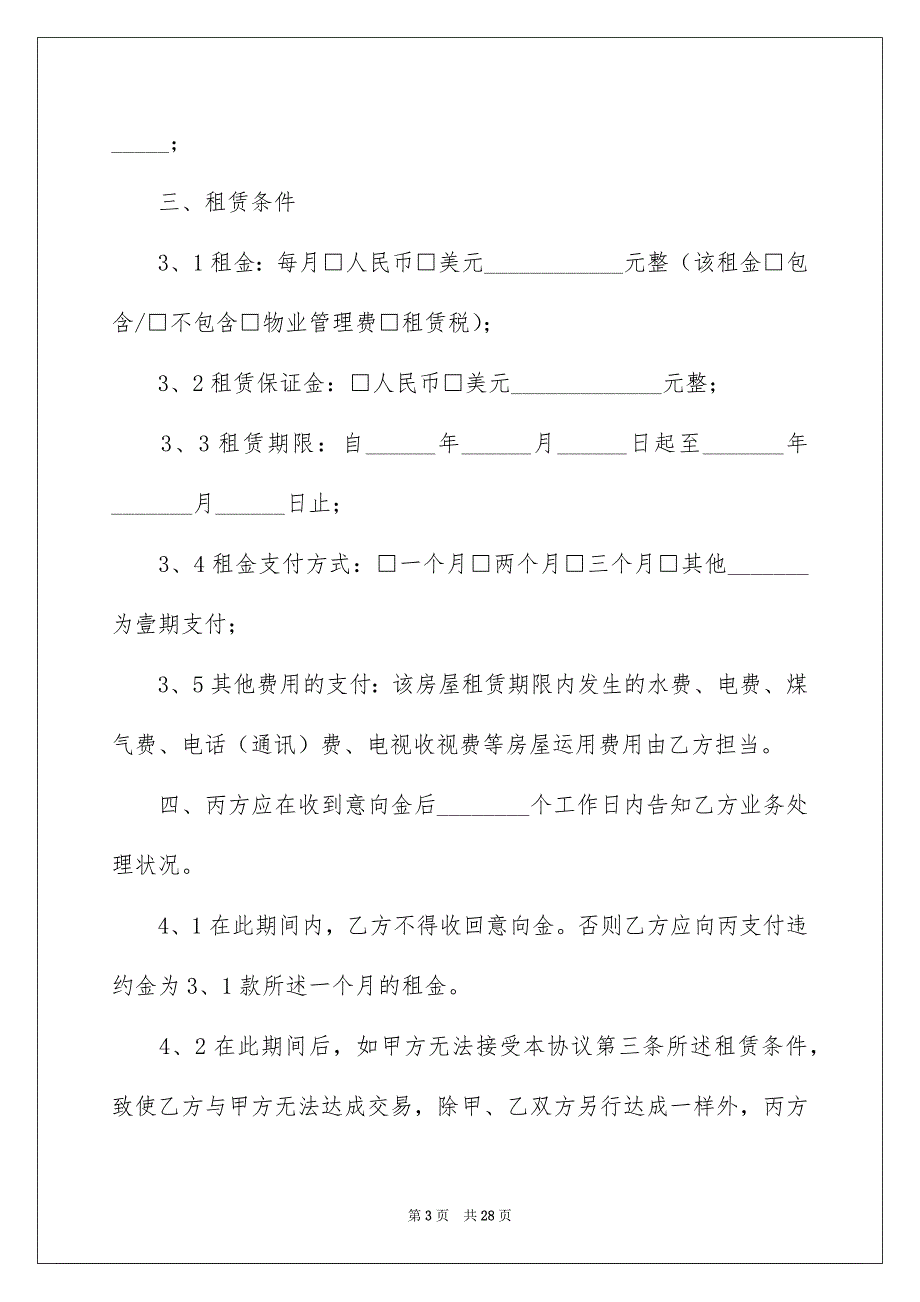 _____；
三、租赁条件
3、1租金：每月□人民币□美元____________元整（该租金□包
含/□不包含□物业管理费□租赁税）；
3、2租赁保证金：□人民币□美元_____________元整；
3、3租赁期限：自______年______月______日起至_______年
_______月______日止；
3、4租金支付方式：□一个月□两个月□三个月□其他_______
为壹期支付；
3、5其他费用的支付：该房屋租赁期限内发生的水费、电费、煤
气费、电话（通讯）费、电视收视费等房屋运用费用由乙方担当。
四、丙方应在收到意向金后________个工作日内告知乙方业务处
理状况。
4、1在此期间内，乙方不得收回意向金。否则乙方应向丙支付违
约金为3、1款所述一个月的租金。
4、2在此期间后，如甲方无法接受本协议第三条所述租赁条件，
致使乙方与甲方无法达成交易，除甲、乙双方另行达成一样外，丙方
第 3 页 共 28 页